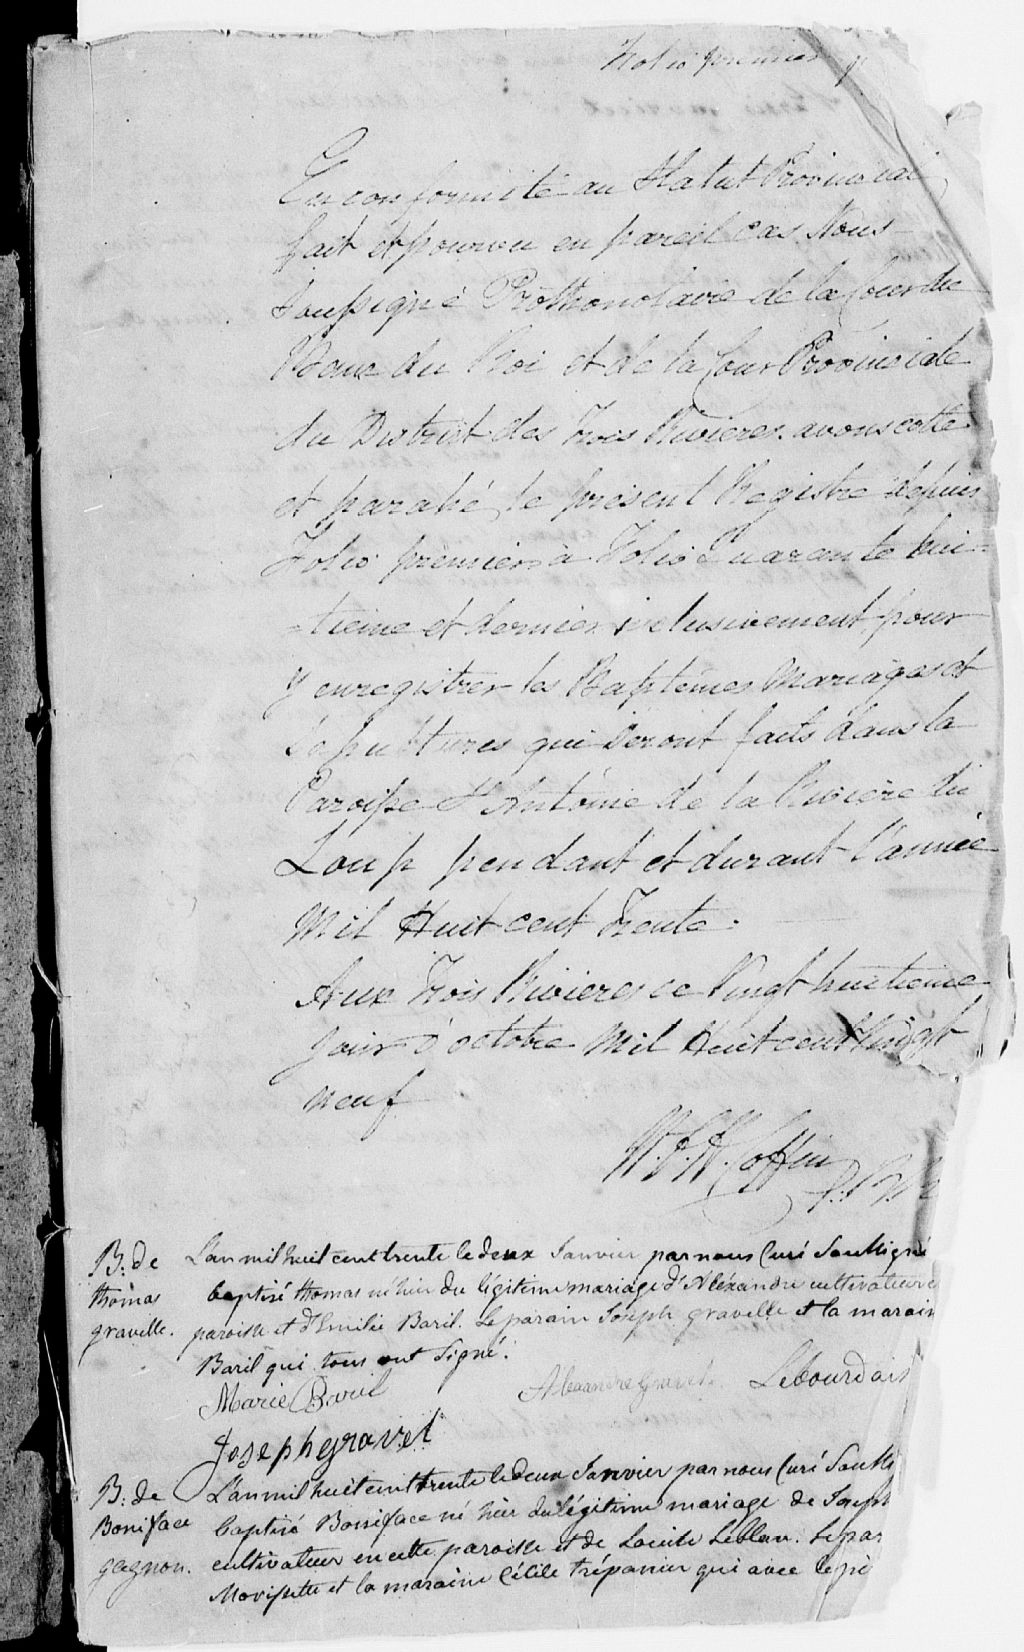 Folio premier
En conformité au Statut Provincial
fait et pourvu en pareil cas Nous
Soussigné Prothonotaire de la Cour du
Banc du Roi et de la Cour Provinciale
du District des Trois Rivieres avons cotté
et parafé le présent Registre depuis
Folio premier à Folio Quarante hui-
-tieme et dernier inclusivement, pour
y enregistrer les Baptêmes Mariages et
Sepultures qui seront faits dans la
Paroisse St Antoine de la Riviere du
Loup pendant et durant l'année
Mil Huit cent Trente.
Aux Trois Rivieres ce Vingt huitieme
Jour d'octobre Mil Huit cent Vingt
neuf
Coffin
B: de
thomas
gravelle.
L'an mil huit cent trente le deux Janvier par nous Curé Soussigné
baptisé thomas né hier du légitime mariage d'Aléxandre cultivateur
paroisse et d'Emilie Baril. Le parain Joseph gravelle et la marain
Baril qui tous ont signé.
Marie Baril
Alexandre Gravel. Lebourdais
Joseph gravel
B: de
Boniface
gagnon.
L'an mil huit cent trente le deux Janvier par nous Curé Souss
baptisé Boniface né hier du légitime mariage de Joseph
cultivateur en cette paroisse et de Louise Leblan. Le par
Morissette et la maraine Cécile trépanier qui avec le pè